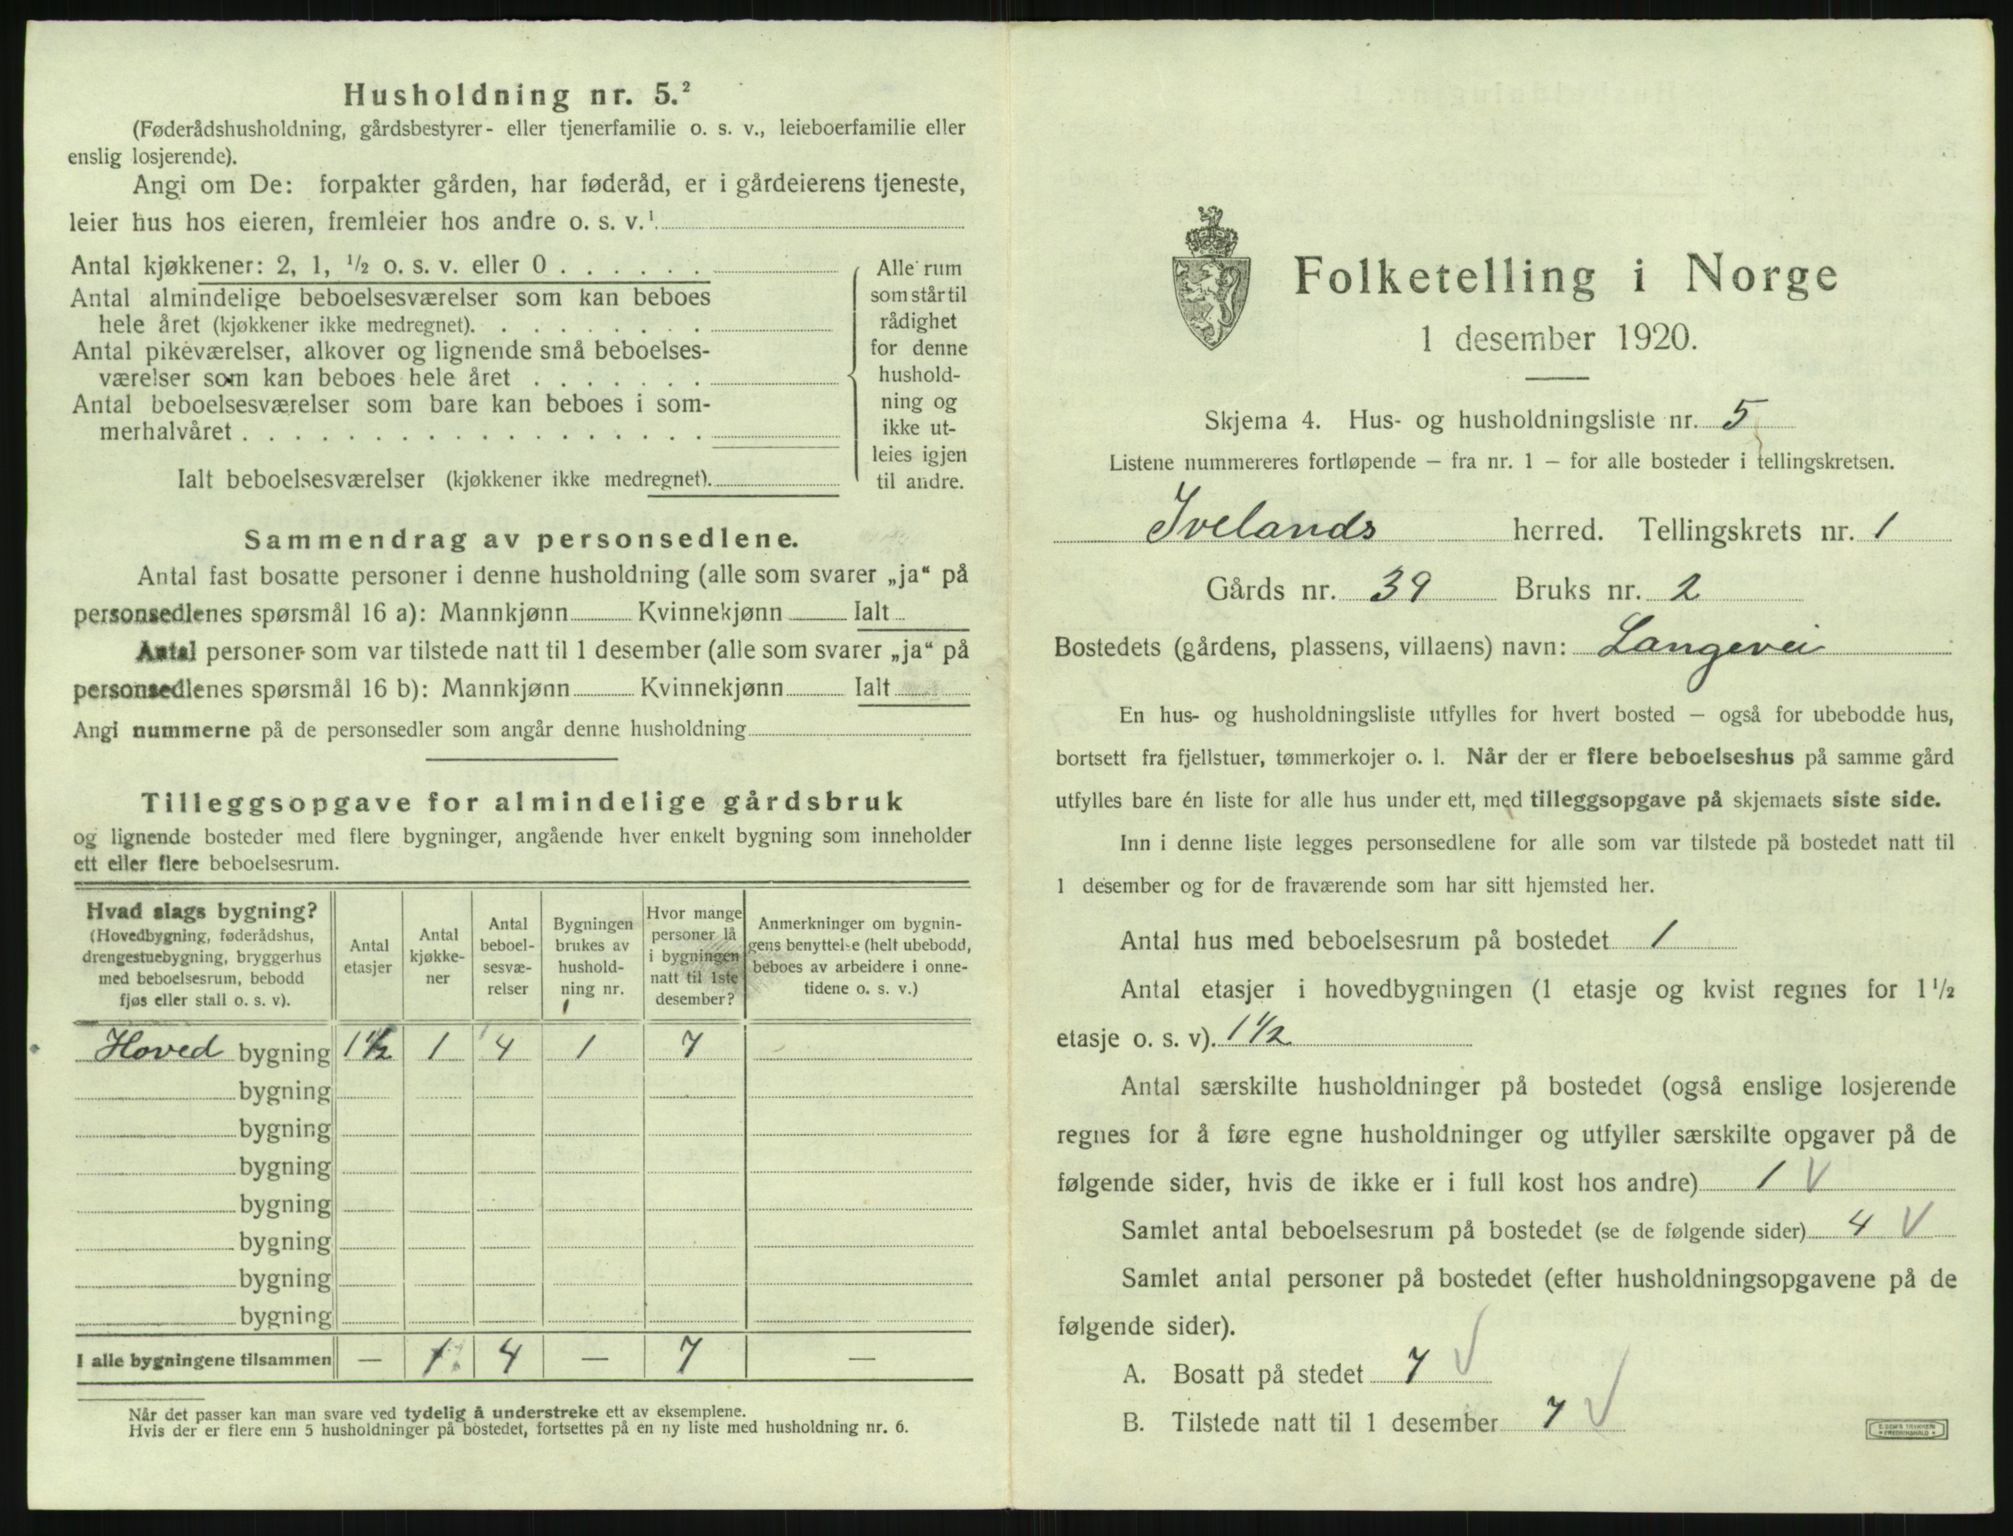 Husholdning nr. 5.²
(Føderådshusholdning, gårdsbestyrer- eller tjenerfamilie o. s. v., leieboerfamilie eller
enslig losjerende).
Angi om De: forpakter gården, har føderåd, er i gårdeierens tjeneste,
leier hus hos eieren, fremleier hos andre o. s. v.¹
Antal kjøkkener: 2, 1, ¹/₂ o. s. v. eller 0 . . . . . .
Antal almindelige beboelsesværelser som kan beboes
hele året (kjøkkener ikke medregnet). . . . . . . . .
Antal pikeværelser, alkover og lignende små beboelses-
værelser som kan beboes hele året . . . . . . .
Antal beboelsesværelser som bare kan beboes i som-
merhalvåret . . . . . . . . . . . . . . . . . .
Ialt beboelsesværelser (kjøkkener ikke medregnet).
Alle rum
som står til
rådighet
for denne
hushold-
ning og
ikke ut-
leies igjen
til andre.
Sammendrag av personsedlene.
Antal fast bosatte personer i denne husholdning (alle som svarer „ja“ på
personsedlenes spørsmål 16 a): Mannkjønn Kvinnekjønn Ialt
Antal personer som var tilstede natt til 1 desember (alle som svarer „ja“ på
personsedlenes spørsmål 16 b): Mannkjønn Kvinnekjønn Ialt
Angi nummerne på de personsedler som angår denne husholdning
Tilleggsopgave for almindelige gårdsbruk
og lignende bosteder med flere bygninger, angående hver enkelt bygning som inneholder
ett eller flere beboelsesrum.
Hvad slags bygning?
(Hovedbygning, føderådshus,
drengestuebygning, bryggerhus
med beboelsesrum, bebodd
fjøs eller stall o. s. v).
Antal
etasjer
Antal
kjøkke-
ner
Antal
beboel-
sesvæ-
relser
Bygningen
brukes av
hushold-
ning nr.
1
Hvor mange
personer lå
i bygningen
natt til 1ste
desember?
Anmerkninger om bygnin-
gens benyttelse (helt ubebodd,
beboes av arbeidere i onne-
tidene o. s. v.)
Hoved bygning 1 1/2 1 4 1 7
bygning
bygning
bygning
bygning
bygning
bygning
bygning
I alle bygningene tilsammen — 1 4 — 7 —
Når det passer kan man svare ved tydelig å understreke ett av eksemplene.
Hvis der er flere enn 5 husholdninger på bostedet, fortsettes på en ny liste med husholdning nr. 6.
Folketelling i Norge
1 desember 1920.
Skjema 4. Hus- og husholdningsliste nr. 5
Listene nummereres fortløpende – fra nr. 1 – for alle bosteder i tellingskretsen.
Ivelands herred. Tellingskrets nr. 1
Gårds nr. 39 Bruks nr. 2
Bostedets (gårdens, plassens, villaens) navn: Langevei
En hus- og husholdningsliste utfylles for hvert bosted – også for ubebodde hus,
bortsett fra fjellstuer, tømmerkojer o. l. Når der er flere beboelseshus på samme gård
utfylles bare én liste for alle hus under ett, med tilleggsopgave på skjemaets siste side.
Inn i denne liste legges personsedlene for alle som var tilstede på bostedet natt til
1 desember og for de fraværende som har sitt hjemsted her.
Antal hus med beboelsesrum på bostedet 1
Antal etasjer i hovedbygningen (1 etasje og kvist regnes for 1 ¹/₂
etasje o. s. v). 1 1/2
Antal særskilte husholdninger på bostedet (også enslige losjerende
regnes for å føre egne husholdninger og utfyller særskilte opgaver på de
følgende sider, hvis de ikke er i full kost hos andre) 1 V
Samlet antal beboelsesrum på bostedet (se de følgende sider) 4 V
Samlet antal personer på bostedet (efter husholdningsopgavene på de
følgende sider).
A. Bosatt på stedet 7 V
B. Tilstede natt til 1 desember 7 V